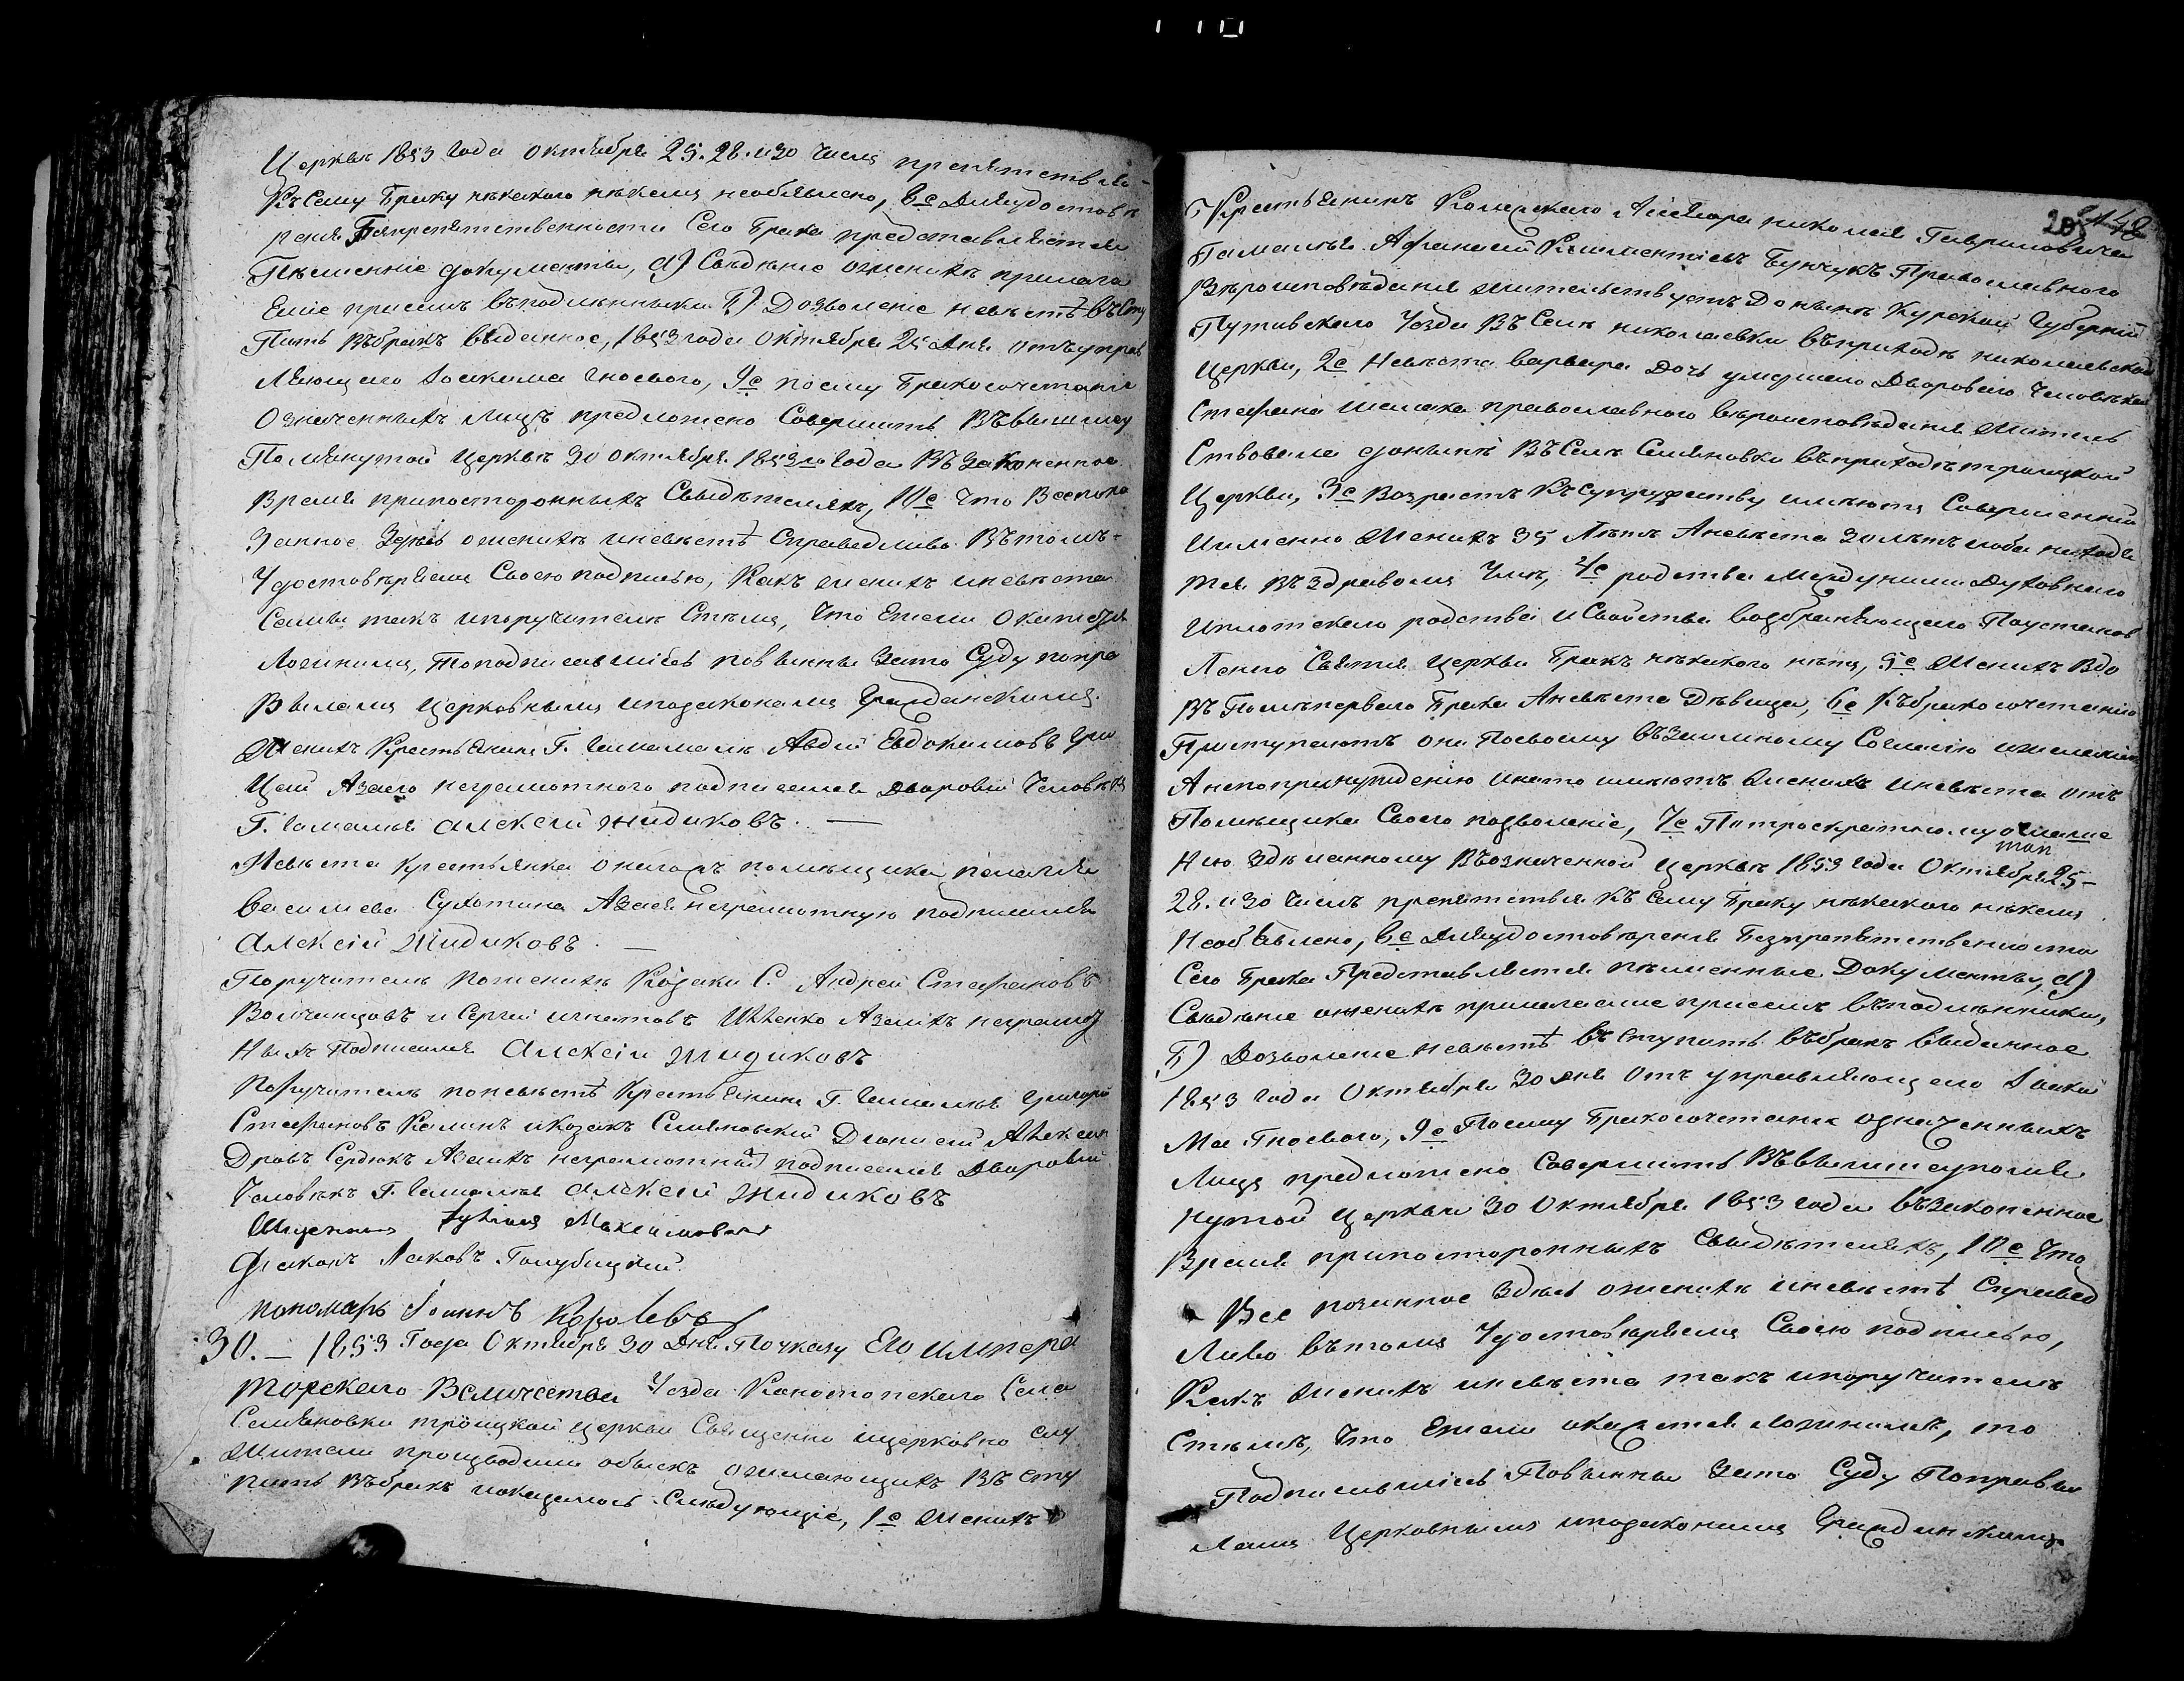 Церквѣ 1853 года октября 25. 28. и 30 числъ препятствія
Къ сему браку нѣкакого нѣкемъ необъявлено, 8е Для удостовѣ
ренія Безпрепятственности Сего брака представляется
Писменніе документы, а) Сведеніе ожениxѣ прилага
емое присемъ въподлѣнныки б) Дозволеніе невѣстѣ въсту
Пить въбракъ выданное, 1853 года Октября 25 дня отъуправ
ляющаго Іоакима Гноеваго, 9е посему Бракосочетаніе
Означенныхъ лицъ предложено Совершить Въвышшеу
Помянутой церквѣ 30 октября 1853го года Въ законенное
время припостороннихъ Свыдѣтеляхъ, 10е Что Все пока
Занное Здѣсь оженихѣ иневѣстѣ Справедливо Вътомъ
Удостовѣряемъ Своею подписью, Какъ женихъ иневѣста
Сами такъ ипоручители Стѣмъ, Что Ежели Окажется
Ложнимъ, То подписавшіесь повынны Зато Суду попра
Выламъ Церковнымъ ипозаконамъ Гражданскимъ.
Женихъ Крестьянинъ Г. Гамалѣи Авдій Евдокимовъ Гри
Цай Азаего неграмотного подписался дворовій Человѣкъ
Г. Гамалѣя Алексѣй Жидиковъ. —
Невѣста крестьянка оногожъ помѣщика Пелагія
Василиева Сухотина Азаея неграмотную подписался
Алексѣй Жидиковъ. —
Поручители пожениxѣ Козаки С. Андрей Стефановъ
Волчинцовъ и Сергѣй Игнатовъ Ивженко Азаихъ неграмот
Ныхъ Подписался Алексѣй Жидиковъ
Поручители поневѣстѣ Крестьянинъ Г. Гамалѣя Григорій
Стефановъ Калинъ иКозакъ Семяновскій Діонисій Алексан
Дровъ Сердюкъ Азаихъ неграмотныхъ подписался Дворовій
Человѣкъ Г. Гамалѣя Алексѣй Жидиковъ
Максимовичъ
Діаконъ Іаковъ Голубицкій
пономарь Іоаннъ Королевъ
30. — 1853 Года Октября 30 Дня Поуказу Его Импера
торскаго Величества Уезда Конотопскаго Села
Семяновки троицкой церкви Священно ицерковно слу
Жители производили обыскъ ожелающихъ Въ сту
пить Въбракъ иоказалось Слѣдующіе, 1е Женихъ
208 148
Крестьянинъ Колежскаго Ассесора николая Гавриловича
Гамалѣя Афанасій Климентіевъ Бунчукъ Православного
Вѣроисповѣданія жительствуетъ Донынѣ Курской Губерніи
Путивскаго Уезда Въ Селѣ николаевки въприходѣ николаевской
Церкви, 2е Невѣста Варвара Дочь умершаго Дворового Человѣка
Стефана православного вѣроисповѣданія Житель
Ствовала донынѣ Въ Селѣ Семяновки въприходѣ троицкой
Церкви, 3е Возрастъ Къ супружеству имѣютъ Совершенній
Именно Женихъ 35 Лѣтъ Аневѣста 30 лѣтъ иоба находя
тся въздравомъ Умѣ, 4е родства Между ними Духовного
Иплотскаго родства и Свойства возбраняющаго Поустанов
Ленію Святія церкви бракъ нѣкакого нѣтъ, 5е Женихъ Вдо
Въ Послѣпервого Брака Аневѣста Дѣвица, 6е Къбракосочетанію
Приступаютъ они Посвоему Възаимному Согласію ижеланію
Анепопринужденію инато имѣютъ Женихъ иневѣста отъ
Помѣщика Своего позволеніе, 7е Потроекратному оглаше
Нію здѣланному Въозначенной Церквѣ 1853 года Октября 25-
28. и 30 числъ препятствія къ сему браку нѣкакого нѣкемъ
Необъявлено, 8е Для удостовѣренія Безпрепятственности
Сего брака Представляется писменные Документы, а)
Сведеніе оженихѣ прилагаемое присемъ въподлѣнники,
Б) Дозволеніе невѣстѣ въступить въбракъ выданное
1853 года Октября 30 дня Отъ управляющаго Іоаки
Ма Гноеваго, 9е Посему Бракосочетаніе означенныхъ
Лицъ предложено Совершить Въвышшеупомя
нутой Церкви 30 Октября 1853 года възаконенное
Время припостороннихъ Свыдѣтеляхъ, 10е Что
Все показанное Здѣсь ожениxѣ иневѣстѣ Справед
ливо вътомъ Удостовѣряемъ Своею подписью,
Какъ Женихъ иневѣста такъ ипоручители
Стѣмъ, Что Ежели окажется ложнимъ, то
Подписавшіесь Повынны Зато Суду Поправы
ламъ Церковнымъ ипозаконамъ Гражданскимъ